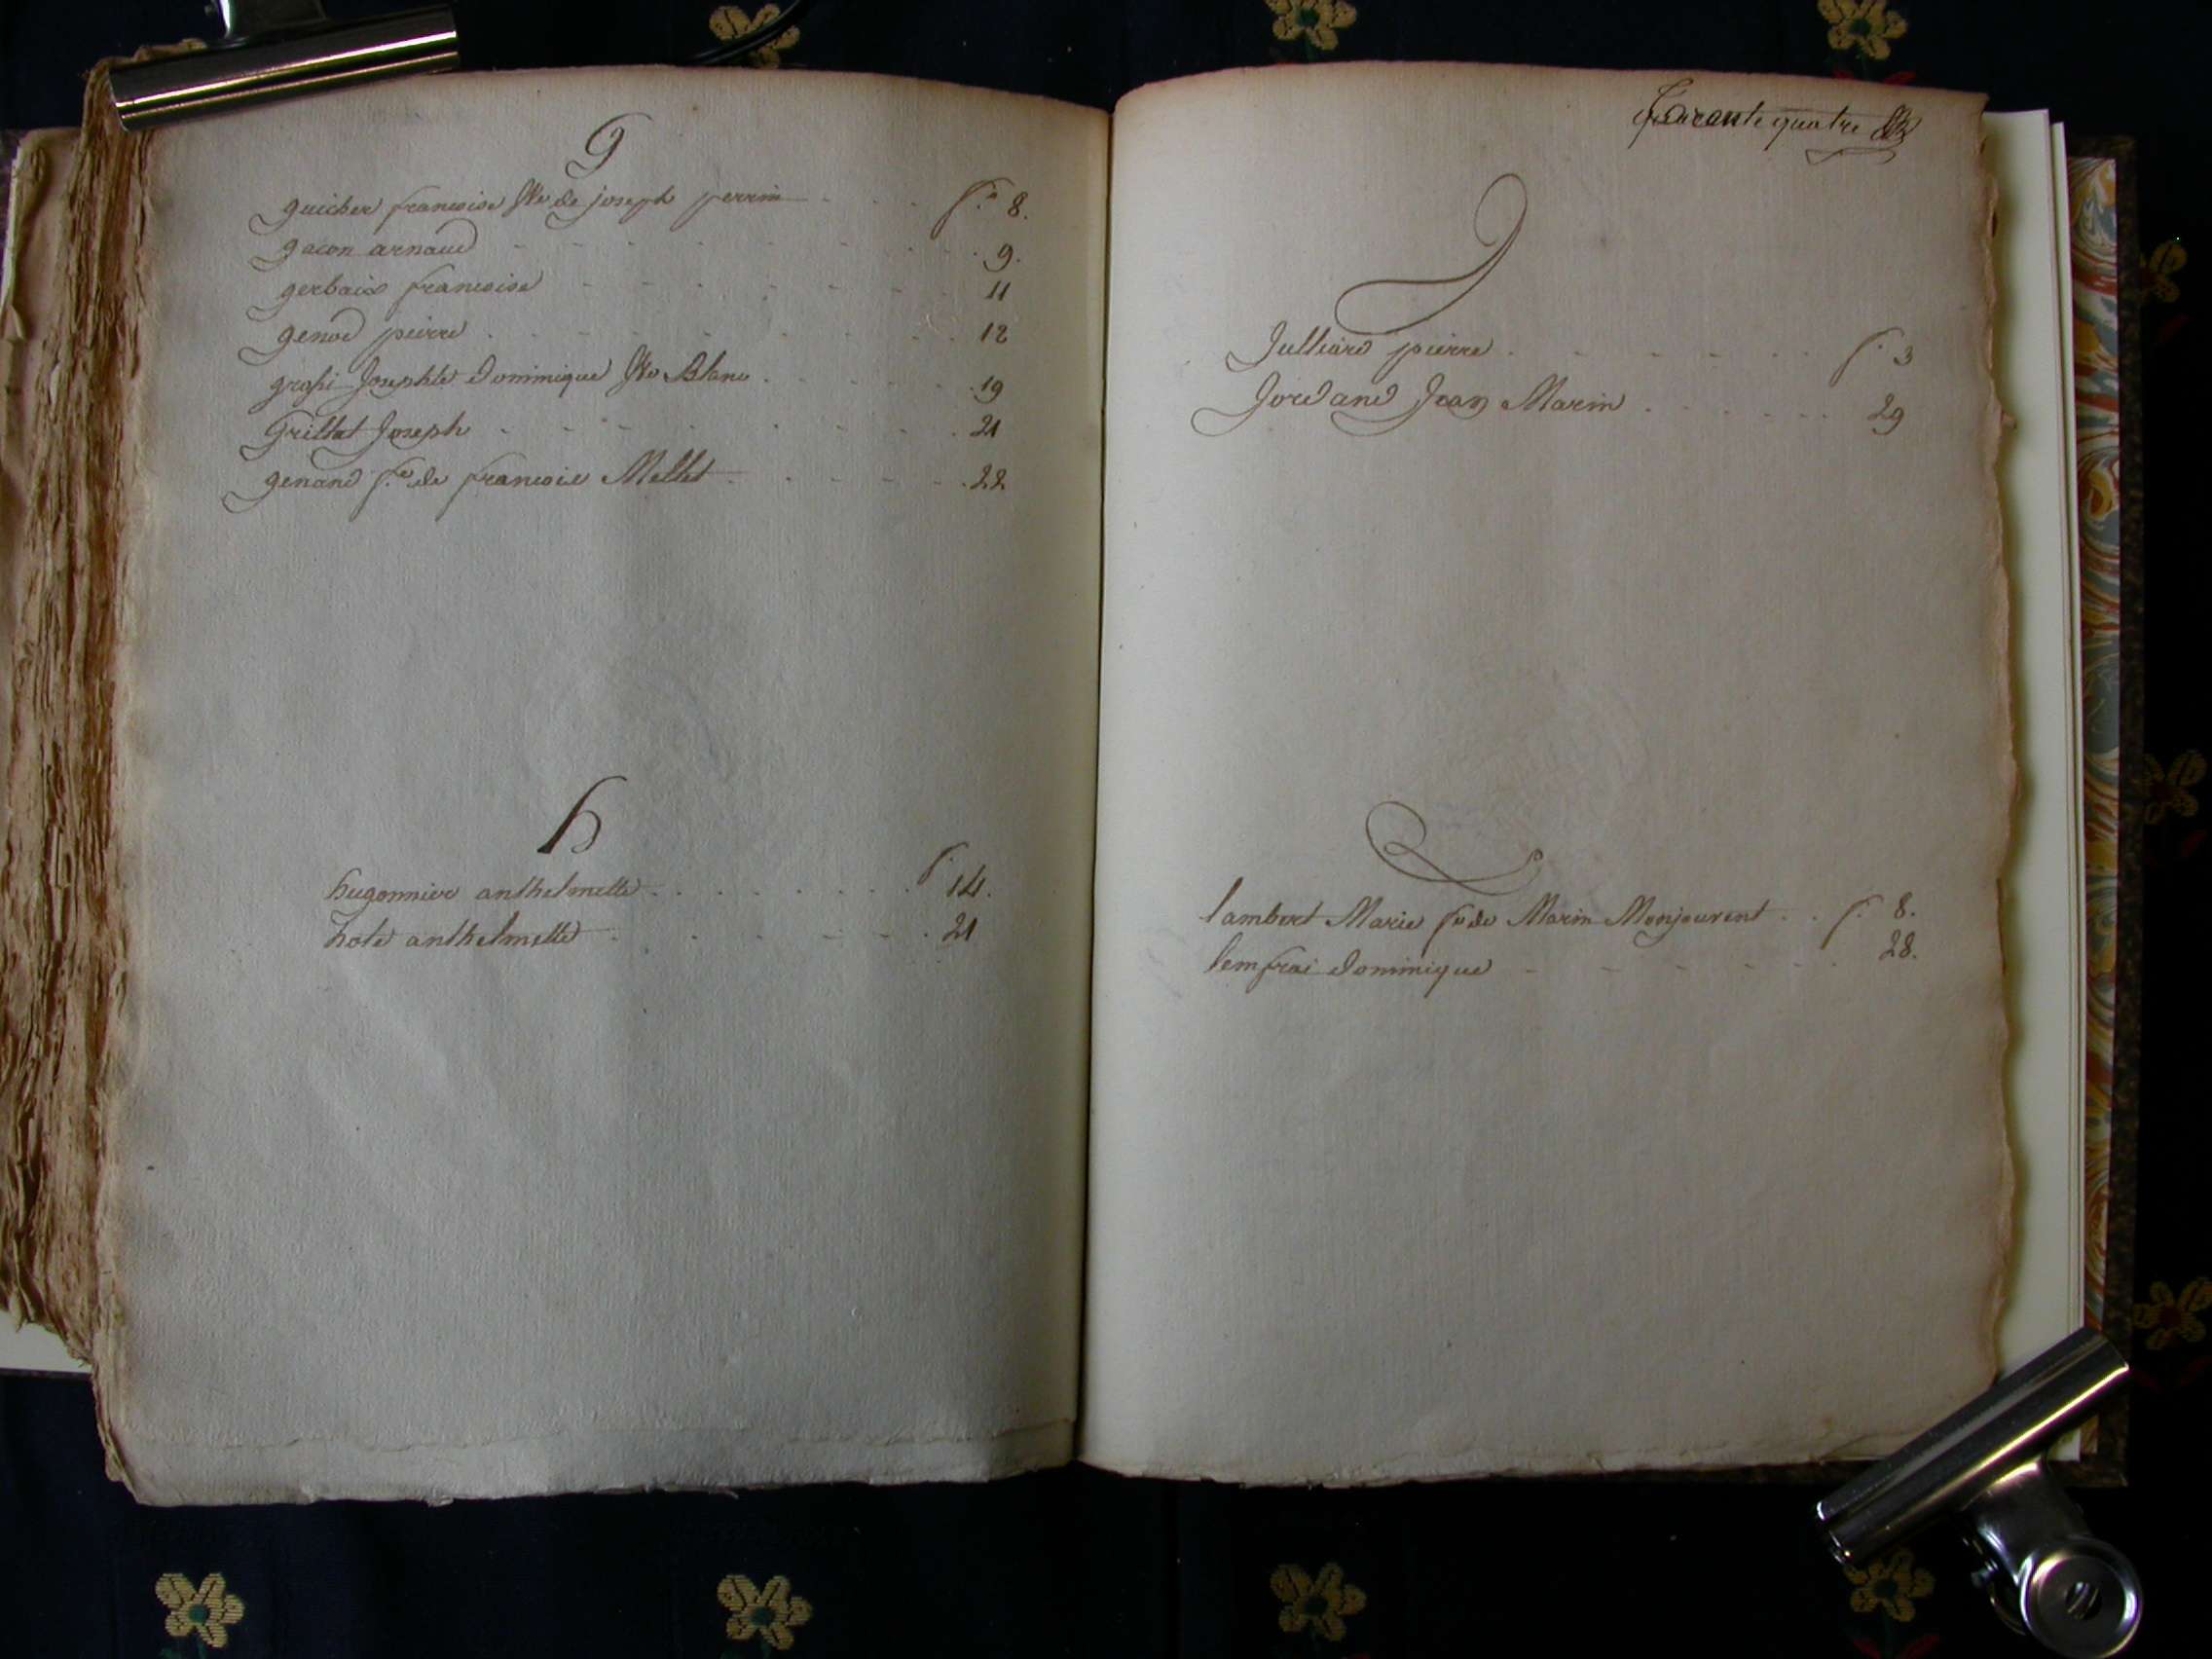 G
guicher francoise Ve de joseph perrin - - - - f.o 8.
gacon arnaud - - - - 9.
gerbaix francoise - - - - 11
genod pierre - - - - 12
grossi Josephte Dominique Ve Blanc - - - - 19
Grillat Joseph - - - - 21
genand f.e de francois Mellet - - - - 22
h
hugonnier anthelmette - - - - f. 14.
hote anthelmette - - - - 21
quarante quatre
J
Julliard pierre - - - - f. 3
Jordand Jean Marin - - - - 29
L
lambert Marie fe de Marin Monjauvent - - f. 8.
lemfrai Dominique - - - - 28.